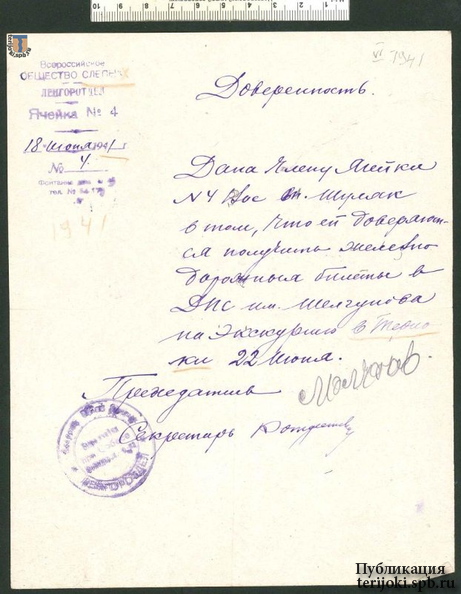 Всероссийское
ОБЩЕСТВО СЛЕПЫХ
ЛЕНГОРОТДЕЛ
Ячейка № 4
18 Июня 1941 г
№ 4.
Фонтанка
тел. №
1941
VI 1941
Доверенность.
Дана Члену Ячейки
N 4 Вос Шуляк
в том, что ей доверяет-
ся получить железно
дорожныя билеты в
ДПС им. Шелгунова
на Экскурсию в Терио
ки 22 Июня.
Председатель
Секретарь
ЛЕНГОРОТДЕЛ
Публикация
terijoki.spb.ru